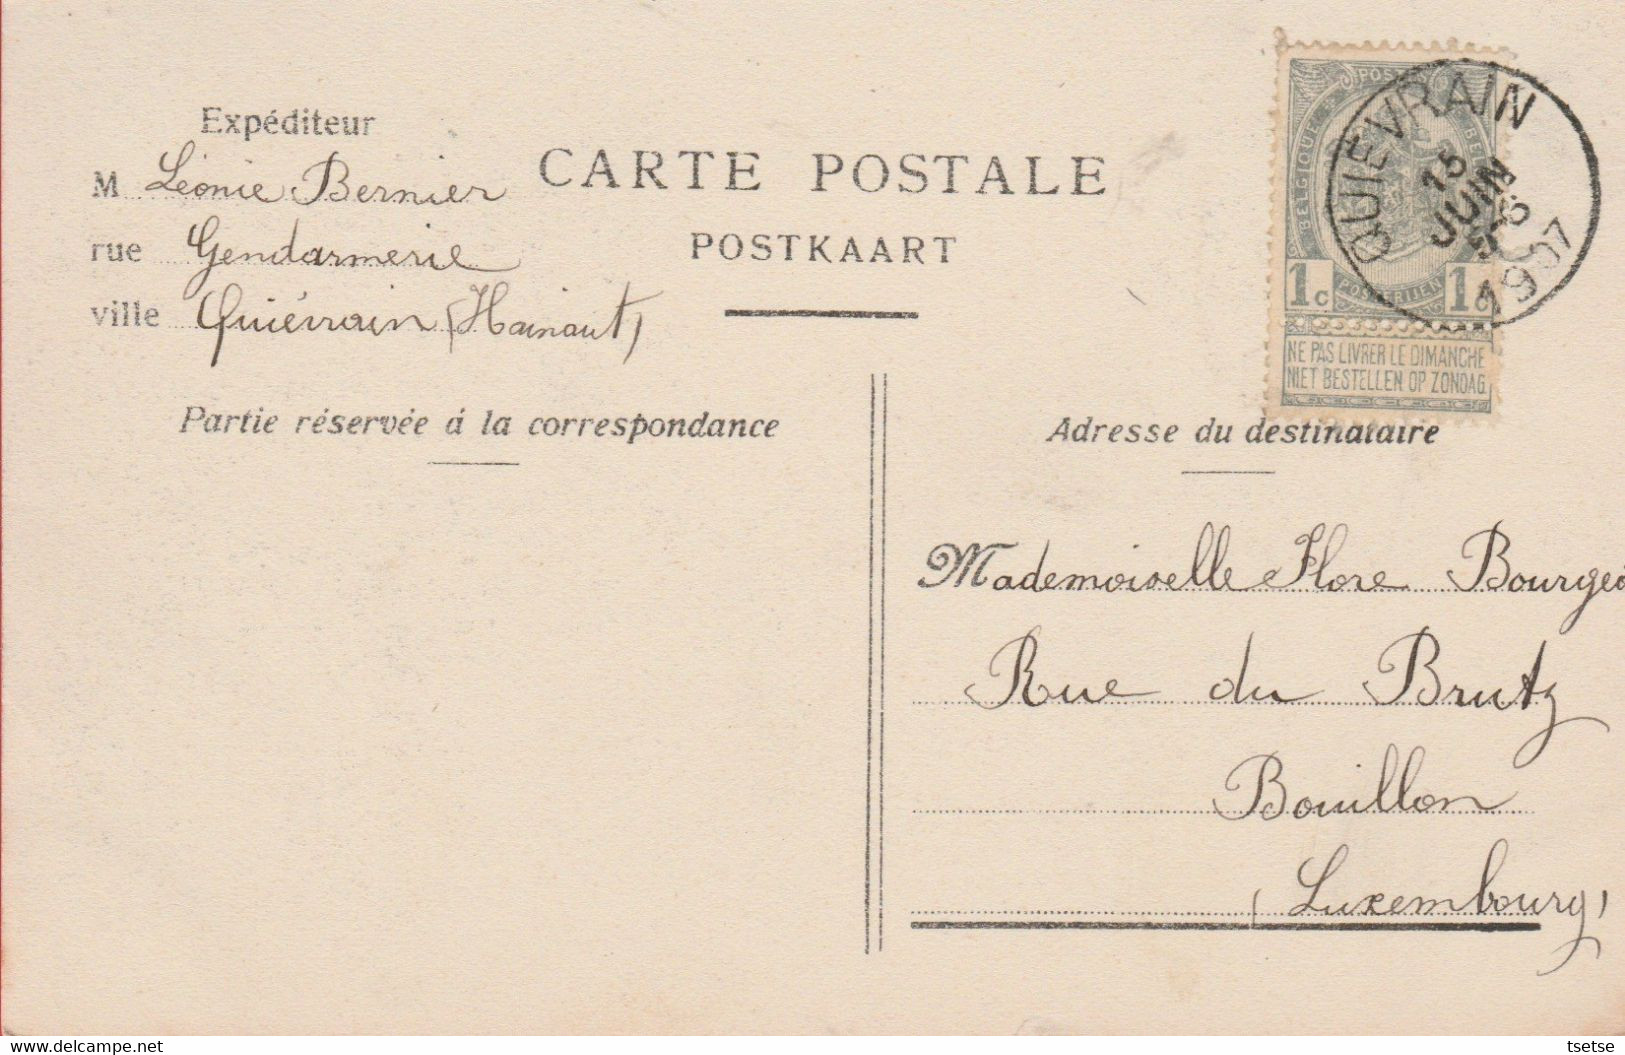 Expéditeur
M Léonie Bernier
rue Gendarmerie
ville Quiévrain (Hainaut)
CARTE POSTALE
POSTKAART
Partie réservée á la correspondance
BELGIQUE POSTES BELGIE
POSTERIJEN
1c 1c
NE PAS LIVRER LE DIMANCHE
NIET BESTELLEN OP ZONDAG
QUIÉVRAIN
15
JUIN
1907
Adresse du destinataire
Mademoiselle Flore
Rue du Brutz
Bouillon
(Luxembourg)
www.delcampe.net
tsetse